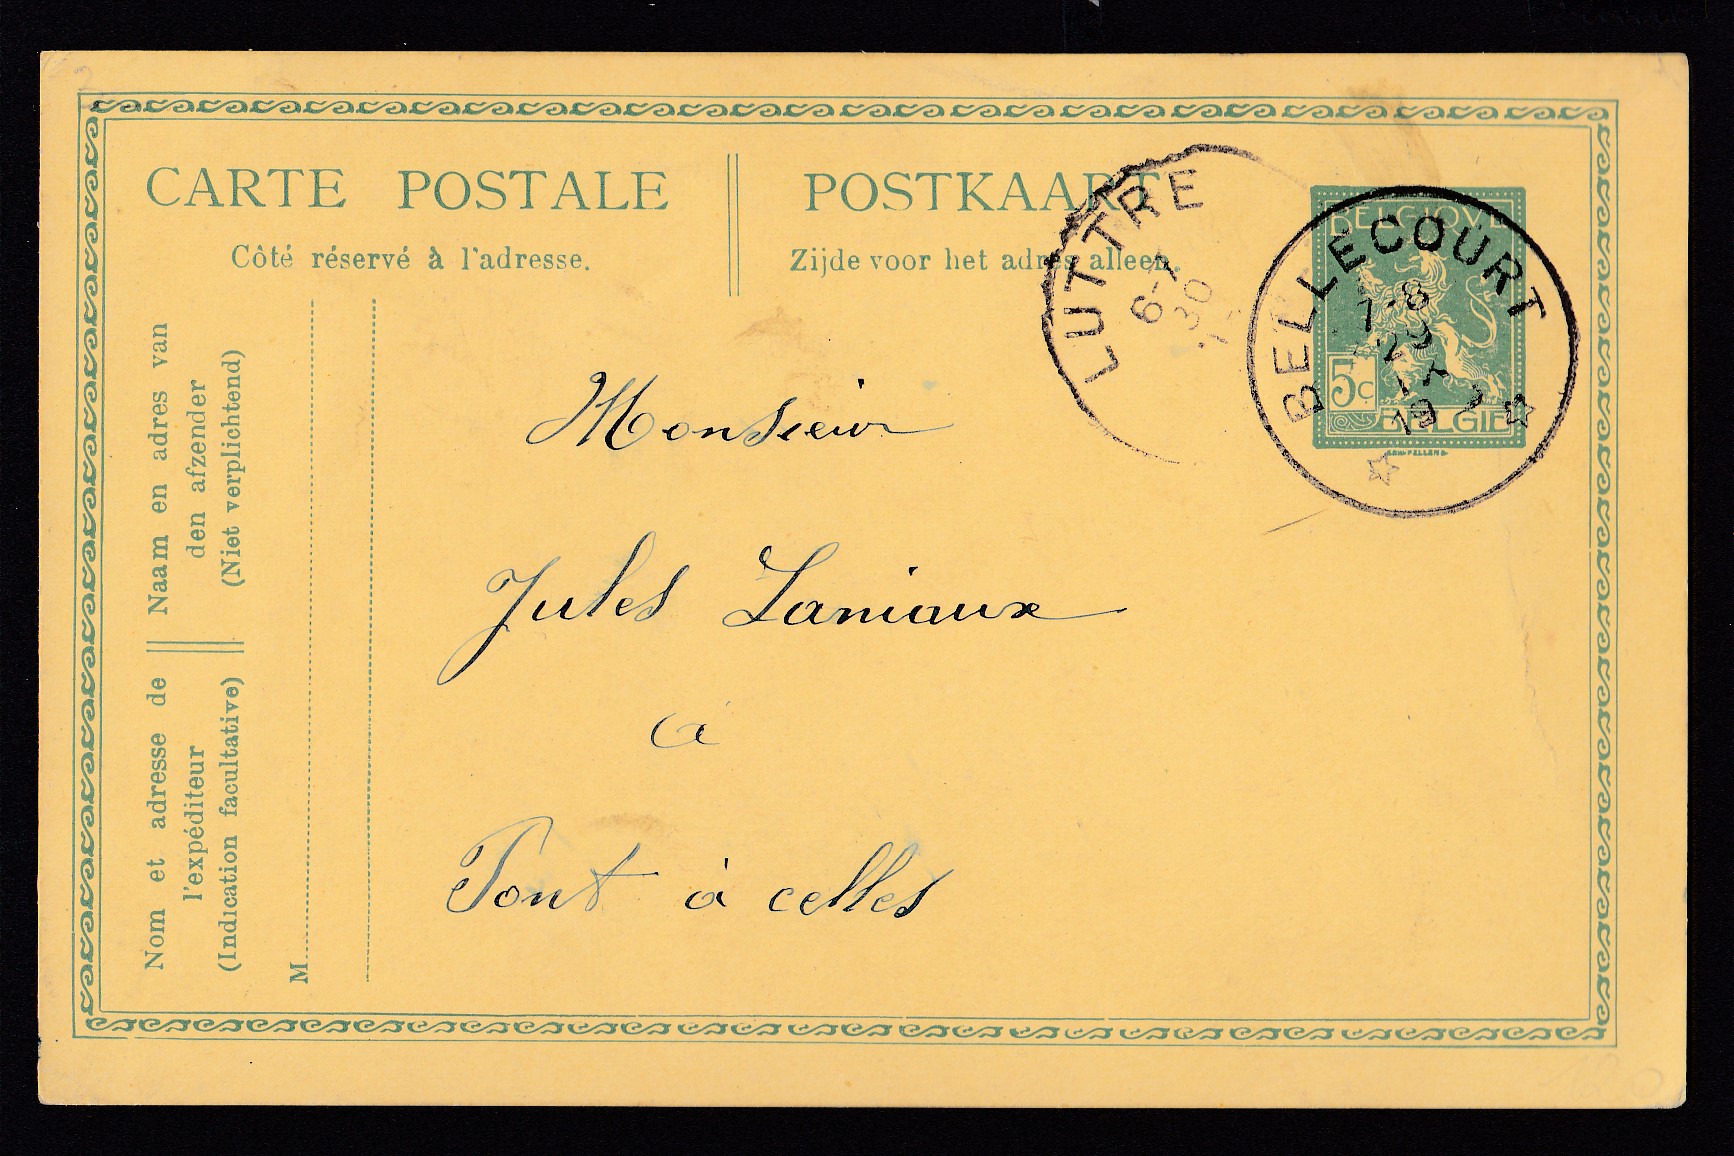 CARTE POSTALE
POSTKAART
Côté réservé à l'adresse.
Zijde voor het adres alleen.
LUTTRE
6-7
30
BELGIQUE
BELLECOURT
7-8
29
19
5c
BELGIË
Naam en adres van
den afzender
(Niet verplichtend)
Nom et adresse de
l'expéditeur
(Indication facultative)
M
Monsieur
Jules Laniaux
à
Pont à celles